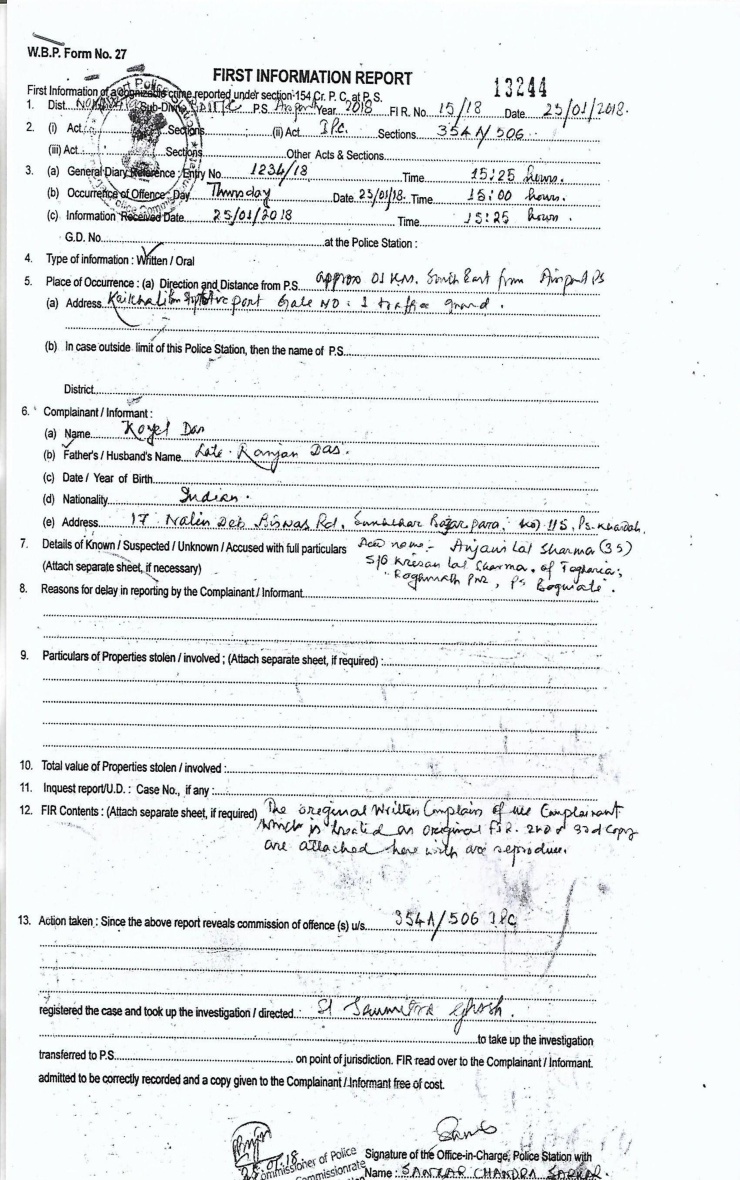 W.B.P. Form No. 27
FIRST INFORMATION REPORT
13244
First Information of a cognizable crime reported under section 154 Cr. P. C. at P. S.
1. Dist. Sub-Divn. P.S. Airport Year 2018 FIR. No. 15/18 Date 25/01/2018.
2. (i) Act Sections (ii) Act IPC. Sections 354A/506
(iii) Act Sections Other Acts & Sections
3. (a) General Diary Reference : Entry No 1234/18 Time 15:25 hours.
(b) Occurrence of Offence : Day Thursday Date 25/01/18. Time 15:00 hours.
(c) Information Received Date 25/01/2018 Time 15:25 hours.
G.D. No. at the Police Station :
4. Type of information : Written / Oral
5. Place of Occurrence : (a) Direction and Distance from P.S. approx 01 K.M. South East from Airport PS
(a) Address port Gate NO: 1 traffic guard.
(b) In case outside limit of this Police Station, then the name of P.S.
District
6. Complainant / Informant :
(a) Name Koyel Das
(b) Father's / Husband's Name Late Ranjan Das.
(c) Date / Year of Birth
(d) Nationality Indian.
(e) Address 17 Nalin Deb Biswas Rd, para, 115, Ps. Khardah.
7. Details of Known / Suspected / Unknown / Accused with full particulars name:- Anjani Lal Sharma (35)
(Attach separate sheet, if necessary) S/O Krisan Lal Sharma, of
Ps Baguiati.
8. Reasons for delay in reporting by the Complainant / Informant
9. Particulars of Properties stolen / involved ; (Attach separate sheet, if required) :
10. Total value of Properties stolen / involved :
11. Inquest report/U.D. : Case No., if any :
12. FIR Contents : (Attach separate sheet, if required) The oreginal Written Complain of the Complainant
which is treated as original FIR. 2nd & 3rd Copy
are attached here with are reproduce.
13. Action taken : Since the above report reveals commission of offence (s) u/s. 354A/506 IPC
registered the case and took up the investigation / directed SI Saumitra Ghosh.
to take up the investigation
transferred to P.S. on point of jurisdiction. FIR read over to the Complainant / Informant.
admitted to be correctly recorded and a copy given to the Complainant / Informant free of cost.
25.01.18
Commissioner of Police
Commissionrate
Signature of the Office-in-Charge, Police Station with
Name : SANKAR CHANDRA SARKAR.